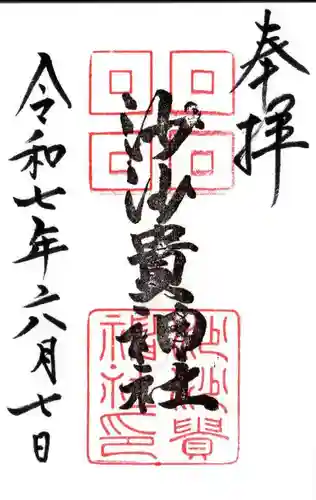 奉拝
沙沙貴神社
令和七年六月七日
沙沙貴
神社印